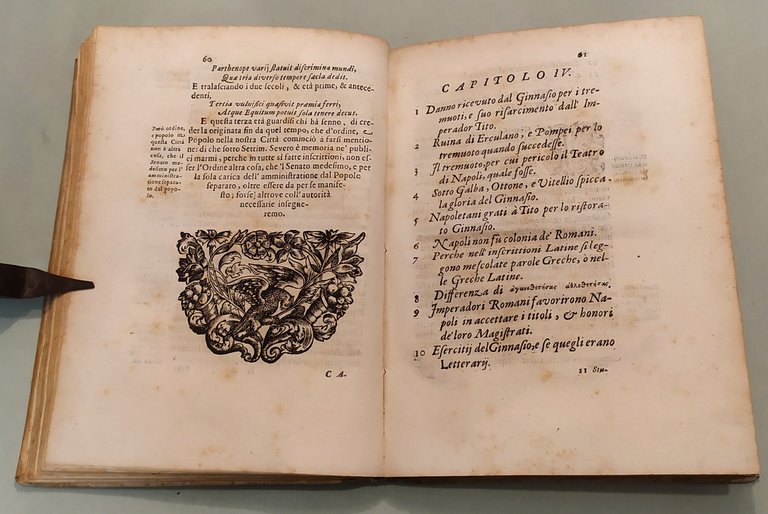 60
Parthenope varij statuit discrimina mundi,
Quæ tria diverso tempore sæcla dedit.
E tralasciando i due secoli, & età prime, & antece-
denti.
Tertia vulnifici quæsivit præmia ferri,
Atque Equitum potuit sola tenere decus.
E questa terza età guardisi chi hà senno, di cre-
derla originata fin da quel tempo, che d'ordine, e
Popolo nella nostra Città cominciò a farsi mentio-
ne: di che sotto Settim. Severo è memoria ne' publi-
ci marmi, perche in tutte sì fatte inscrittioni, non es-
ser l'Ordine altra cosa, che 'l Senato medesimo, e per
la sola carica dell'amministratione dal Popolo
separato, oltre essere da per se manife-
sto; forse altrove coll'autorità
necessarie insegne-
remo.
Però ordine,
e popolo in
questa Città
non è altra
cosa, che il
Senato mede-
simo per l'am-
ministratio-
ne separato
dal popo-
lo.
C A-
61
CAPITOLO IV.
1 Danno ricevuto dal Ginnasio per i tre-
muoti, e suo risarcimento dall' Im-
perador Tito.
2 Ruina di Erculano, e Pompei per lo
tremuoto quando succedesse.
3 Il tremuoto, per cui pericolò il Teatro
di Napoli, quale fosse.
4 Sotto Galba, Ottone, e Vitellio spicca
la gloria del Ginnasio.
5 Napoletani grati à Tito per lo ristora-
to Ginnasio.
6 Napoli non fù colonia de' Romani.
7 Perche nell'inscrittioni Latine si leg-
gono mescolate parole Greche, ò nel-
le Greche Latine.
8 Differenza di
9 Imperadori Romani favorirono Na-
poli in accettare i titoli, & honori
de' loro Magistrati.
10 Esercitij del Ginnasio, e se quegli erano
Letterarij.
11 Sin-